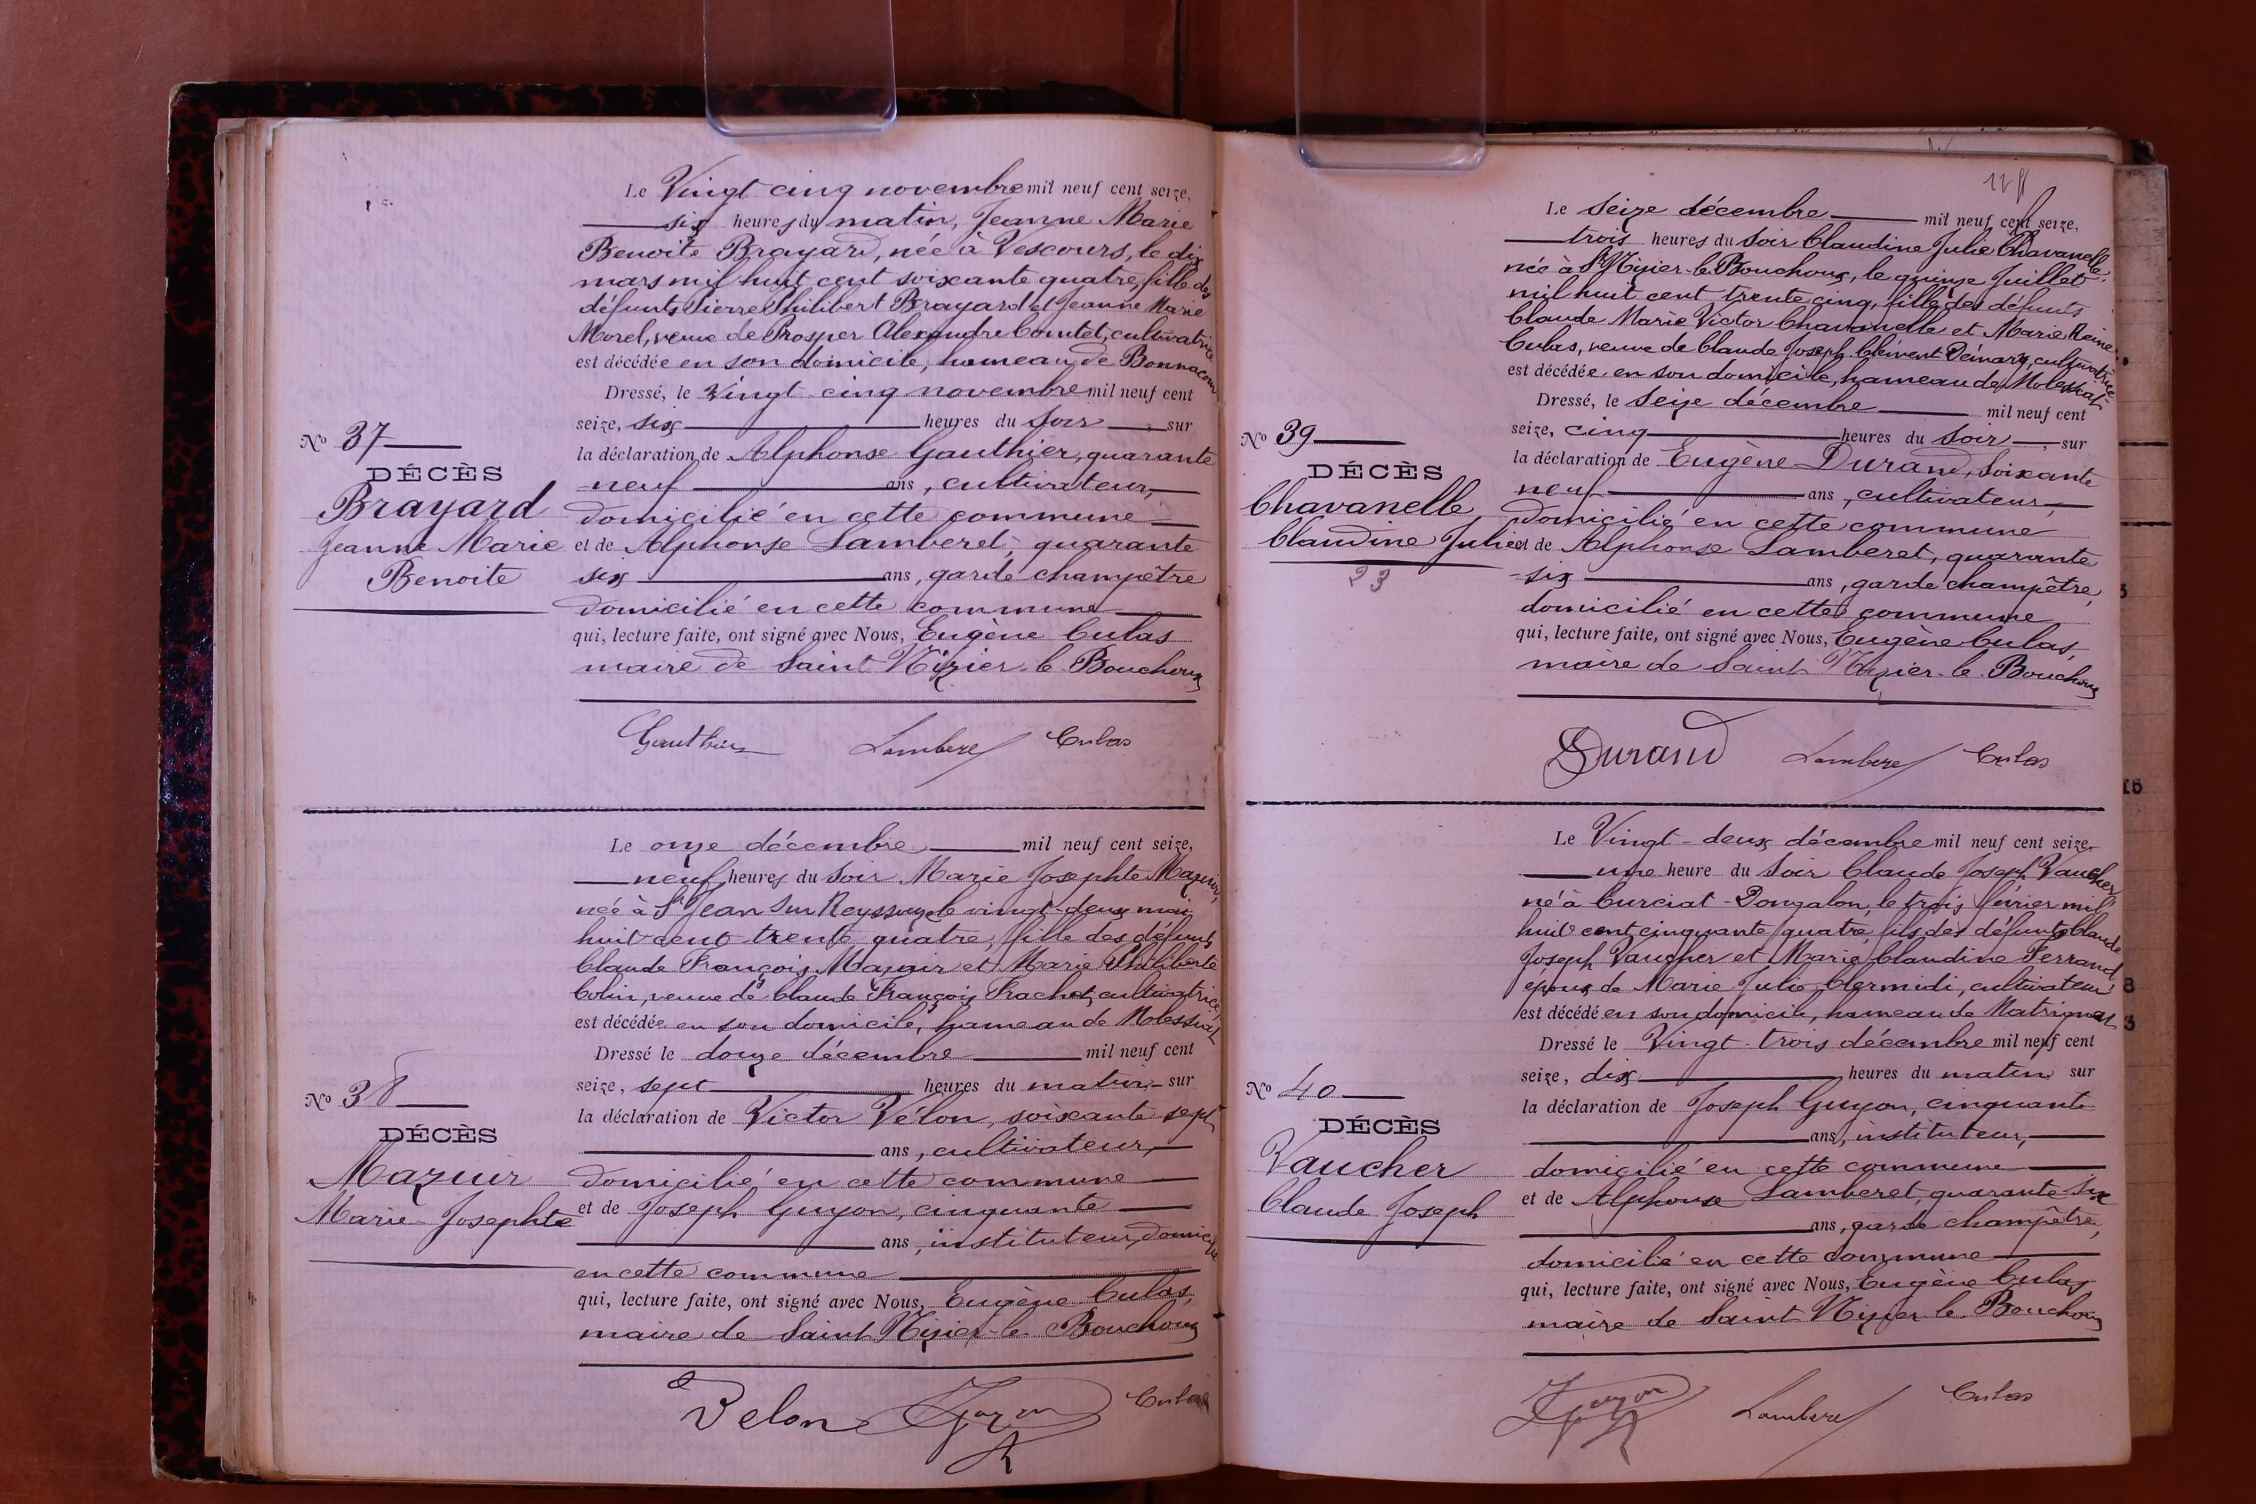 Le Vingt cinq novembre mil neuf cent seize,
six heures du matin, Jeanne Marie
Benoite Brayard, née à Vescours, le dix
mars mil huit cent soixante quatre, fille des
défunts Pierre Philibert Brayard et Jeanne Marie
Morel, veuve de Prosper Alexandre Comtet, cultivatrice
est décédée en son domicile, hameau de Bonnacour
Dressé, le vingt cinq novembre mil neuf cent
seize, six heures du soir, sur
No 37
la déclaration de Alphonse Gauthier, quarante
DÉCÈS
neuf ans, cultivateur,
Brayard
domicilié en cette commune
Jeanne Marie
et de Alphonse Lamberet, quarante
Benoite
six ans, garde champêtre
domicilié en cette commune
qui, lecture faite, ont signé avec Nous, Eugène Culas
maire de Saint Nizier-le-Bouchoux
Gauthier Lamberet Culas
Le onze décembre mil neuf cent seize,
neuf heures du soir Marie Josephte Mazuir,
née à St Jean sur Reyssouze le vingt-deux mai
huit cent trente quatre, fille des défunts
Claude François Mazuir et Marie Philiberte
Colin, veuve de Claude François Trachet, cultivatrice,
est décédée en son domicile, hameau de Molessuat
Dressé le douze décembre mil neuf cent
seize, sept heures du matin sur
No 38
la déclaration de Victor Vélon, soixante sept
DÉCÈS
ans, cultivateur,
Mazuir
domicilié en cette commune
Marie Josephte
et de Joseph Guyon, cinquante
ans, instituteur, domicilié
en cette commune
qui, lecture faite, ont signé avec Nous, Eugène Culas,
maire de Saint Nizier-le-Bouchoux
Velon Guyon Culas
Le seize décembre mil neuf cent seize,
trois heures du soir Claudine Julie Chavanelle,
née à St Nizier-le-Bouchoux, le quinze Juillet
mil huit cent trente cinq, fille des défunts
Claude Marie Victor Chavanelle et Marie Reine
Culas, veuve de Claude Joseph Clément Dénary, cultivatrice
est décédée en son domicile, hameau de Molessuat
Dressé, le seize décembre mil neuf cent
seize, cinq heures du soir, sur
No 39
la déclaration de Eugène Durand, soixante
DÉCÈS
neuf ans, cultivateur,
Chavanelle
domicilié en cette commune
Claudine Julie
et de Alphonse Lamberet, quarante
23
six ans, garde champêtre,
domicilié en cette commune
qui, lecture faite, ont signé avec Nous, Eugène Culas,
maire de Saint Nizier-le-Bouchoux
Durand Lamberet Culas
Le Vingt-deux décembre mil neuf cent seize,
une heure du soir Claude Joseph Vaucher
né à Curciat-Dongalon, le trois février mil
huit cent cinquante quatre, fils des défunts Claude
Joseph Vaucher et Marie Claudine Ferrand,
époux de Marie Julie Clermidi, cultivateur,
est décédé en son domicile, hameau de Matrignat
Dressé le Vingt-trois décembre mil neuf cent
seize, dix heures du matin sur
No 40
la déclaration de Joseph Guyon, cinquante
DÉCÈS
ans, instituteur,
Vaucher
domicilié en cette commune
Claude Joseph
et de Alphonse Lamberet, quarante-six
ans, garde champêtre,
domicilié en cette commune
qui, lecture faite, ont signé avec Nous, Eugène Culas
maire de Saint Nizier-le-Bouchoux
Guyon Lamberet Culas